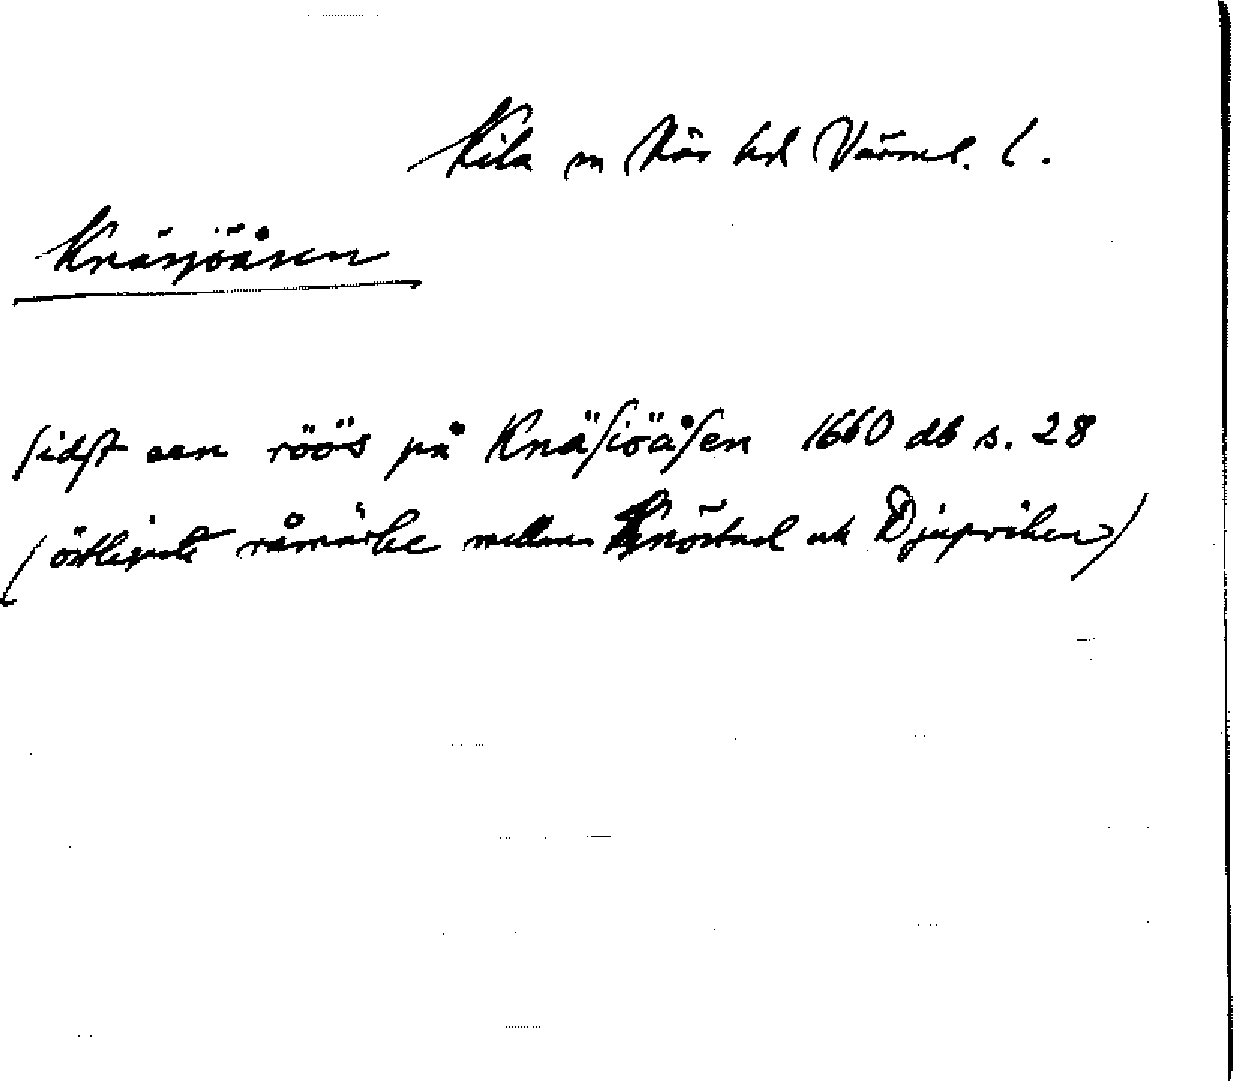 Kila sn Näs hd Värml. l.
Knäsjöåsen
sidst een röös på Knäsiöåsen 1660 db s. 28
(östligaste råmärke mellan Knöstad och Djupviken)